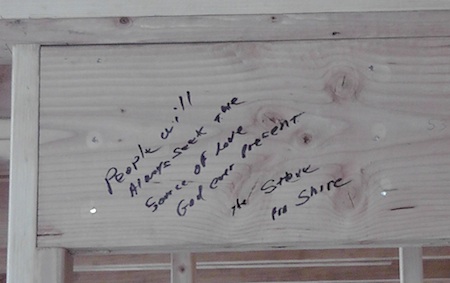 People will
Always Seek the
Source of Love
God ever present
the Stone